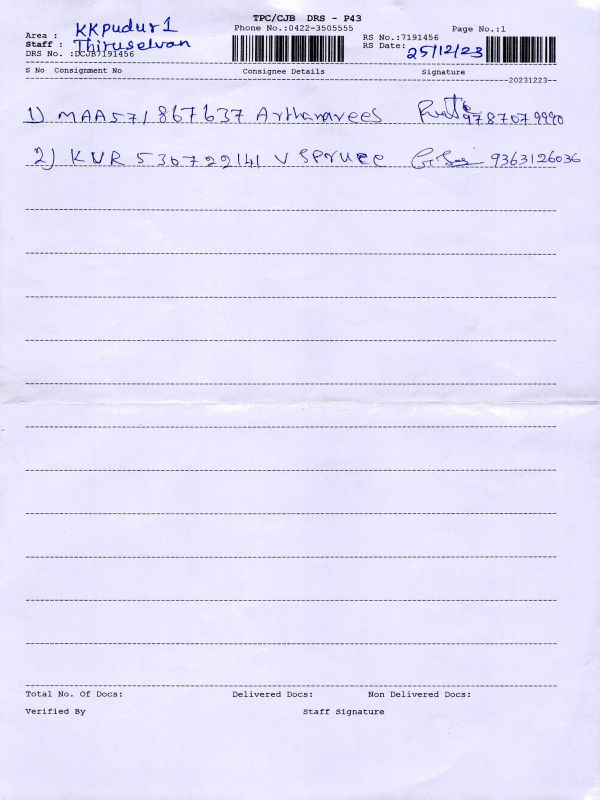 TPC/CJB DRS - P43
Area : KKpudur1 Phone No.:0422-3505555 Page No.:1
Staff : Thiruselvan RS No.:7191456
DRS No. :DCJB7191456 RS Date: 25/12/23
S No Consignment No Consignee Details Signature
20231223
1) MAA571867637 Arthanarees 9787079990
2) KVR 530722141 V Spruce 9363126036
Total No. Of Docs: Delivered Docs: Non Delivered Docs:
Verified By Staff Signature